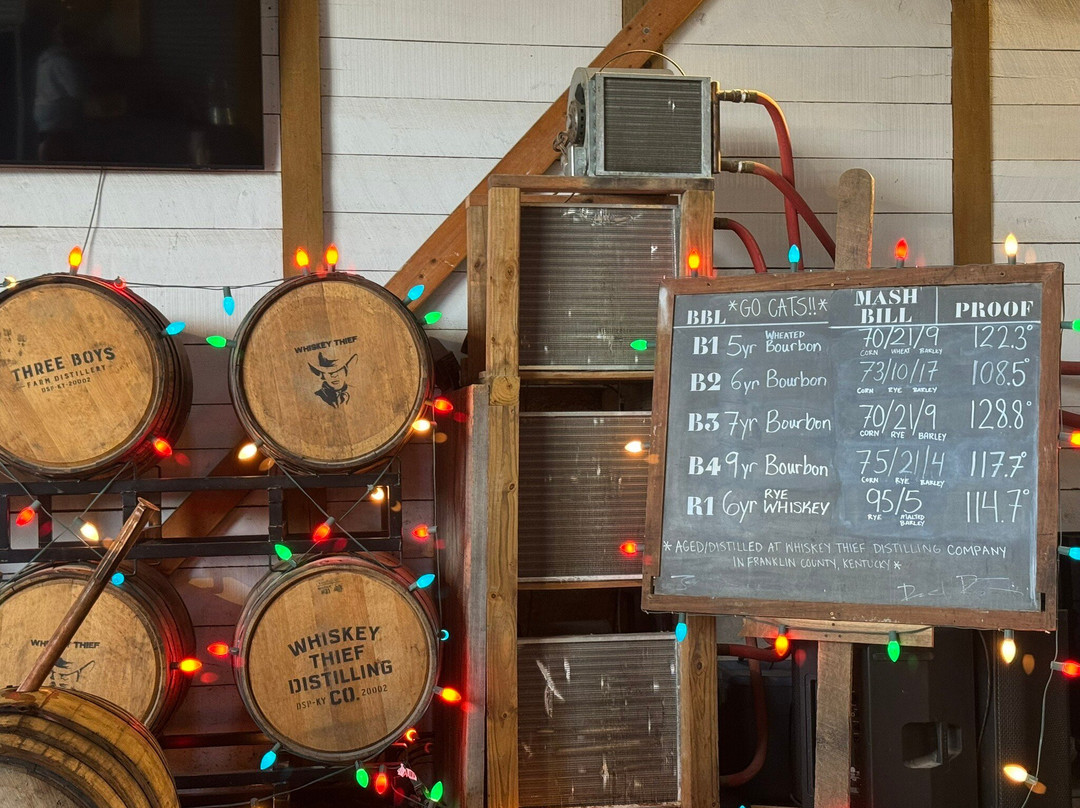 THREE BOYS
FARM DISTILLERY
DSP-KY-20002
WHISKEY THIEF
WHISKEY THIEF
WHISKEY
THIEF
DISTILLING
CO.
DSP-KY 20002
BBL *GO CATS!!* MASH BILL PROOF
B1 5yr WHEATED Bourbon 70/21/9 122.3°
CORN WHEAT BARLEY
B2 6yr Bourbon 73/10/17 108.5°
CORN RYE BARLEY
B3 7yr Bourbon 70/21/9 128.8°
CORN RYE BARLEY
B4 9yr Bourbon 75/21/4 117.7°
CORN RYE BARLEY
R1 6yr RYE WHISKEY 95/5 114.7°
RYE MALTED BARLEY
* AGED/DISTILLED AT WHISKEY THIEF DISTILLING COMPANY
IN FRANKLIN COUNTY, KENTUCKY *